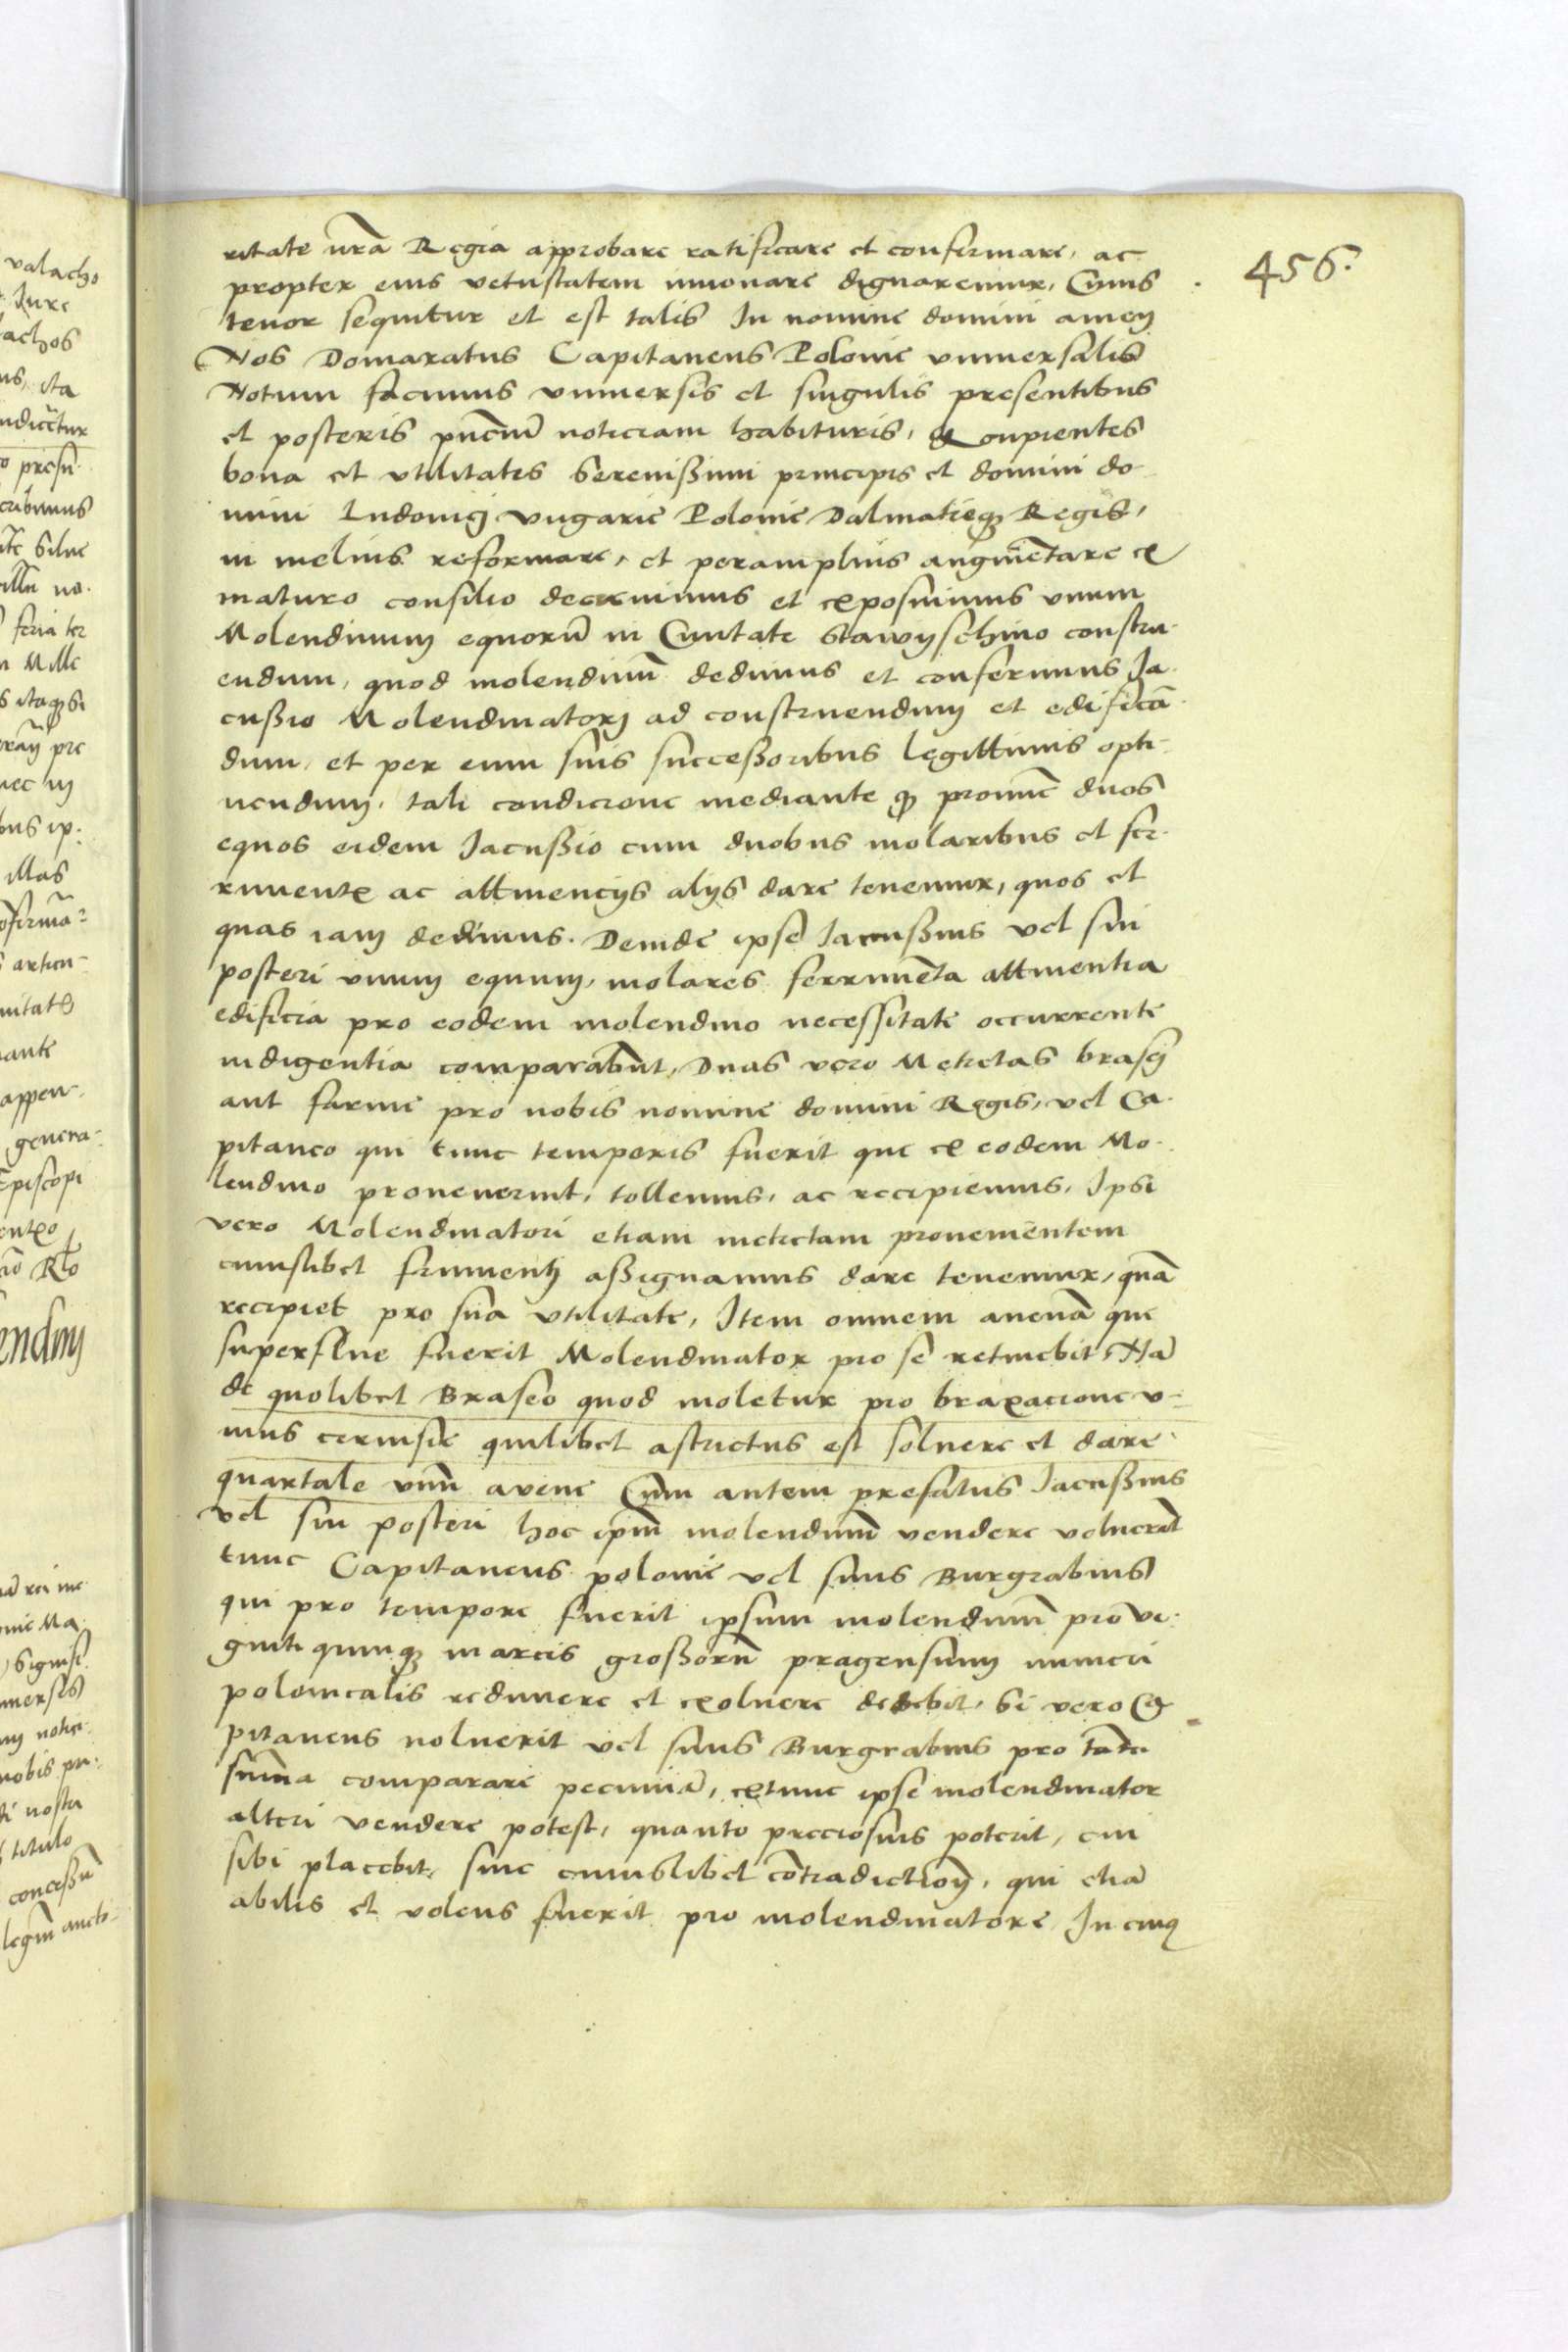 456.
ritate nrã Regia approbare ratificare et confirmare, ac
propter eius vetustatem innouare dignaremur, Cuius
tenor sequitur et est talis In nomine domini amen
Nos Domaratus Capitaneus Polonie vniuersalis
Notum facimus vniuersis et singulis presentibus
et posteris pñcium noticiam habituris, q̃ Cupientes
bona et vtilitates Serenißimi principis et domini do-
mini Ludouici vngarie Polonie Dalmatieqȝ Regis,
in melius reformare, et peramplius augmẽtare ex
maturo consilio decreuimus et exposuimus vnum
Molendinum equorũ in Ciuitate Stawyschino constru-
endum, quod molendinũ dedimus et conferimus Ja-
cußio Molendinatorj ad construendum et edificã-
dum, et per eum suis succeßoribus legittimis opti-
nendum, tali condicione mediante qȝ pronunc duos
equos eidem Jacußio cum duobus molaribus et fer-
rimente ac attinencijs alijs dare tenemur, quos et
quas iam dedimus. Deinde ipse Jacußius vel sui
posteri vnum equum, molares ferrimẽta attinentia
edificia pro eodem molendino necessitate occurrente
indigentia comparabũt, Duas vero Metretas brasij
aut farine pro nobis nomine domini Regis, vel Ca-
pitaneo qui tunc temporis fuerit que ex eodem Mo-
lendino prouenerint, tollemus, ac recipiemus, Ipsi
vero Molendinatori etiam metretam prouenientem
cuiuslibet frumentj aßignamus dare tenemur, quã
recipiet pro sua vtilitate, Item omnem auenã que
superflue fuerit Molendinator pro se retinebit, Nã
de quolibet Braseo quod moletur pro braxacione v-
nius ceruisie quilibet astrictus est soluere et dare
quartale vnũ auene Cum autem prefatus Jacußius
vel sui posteri hoc ipm̃ molendinũ vendere voluerit
tunc Capitaneus polonie vel suus Burgrabius
qui pro tempore fuerit ipsum molendinũ pro vi-
ginti quinqȝ marcis großorũ pragensium numeri
polonicalis redimere et exoluere debebit, Si vero Ca-
pitaneus noluerit vel suus Burgrabius pro tãta
sum̃a comparare pecuniã, extunc ipse molendinator
alteri vendere potest, quanto preciosius poterit, cui
sibi placebit, sine cuiuslibet cõtradictione, qui etiã
abilis et volens fuerit pro molendinatore, In cuiqȝ